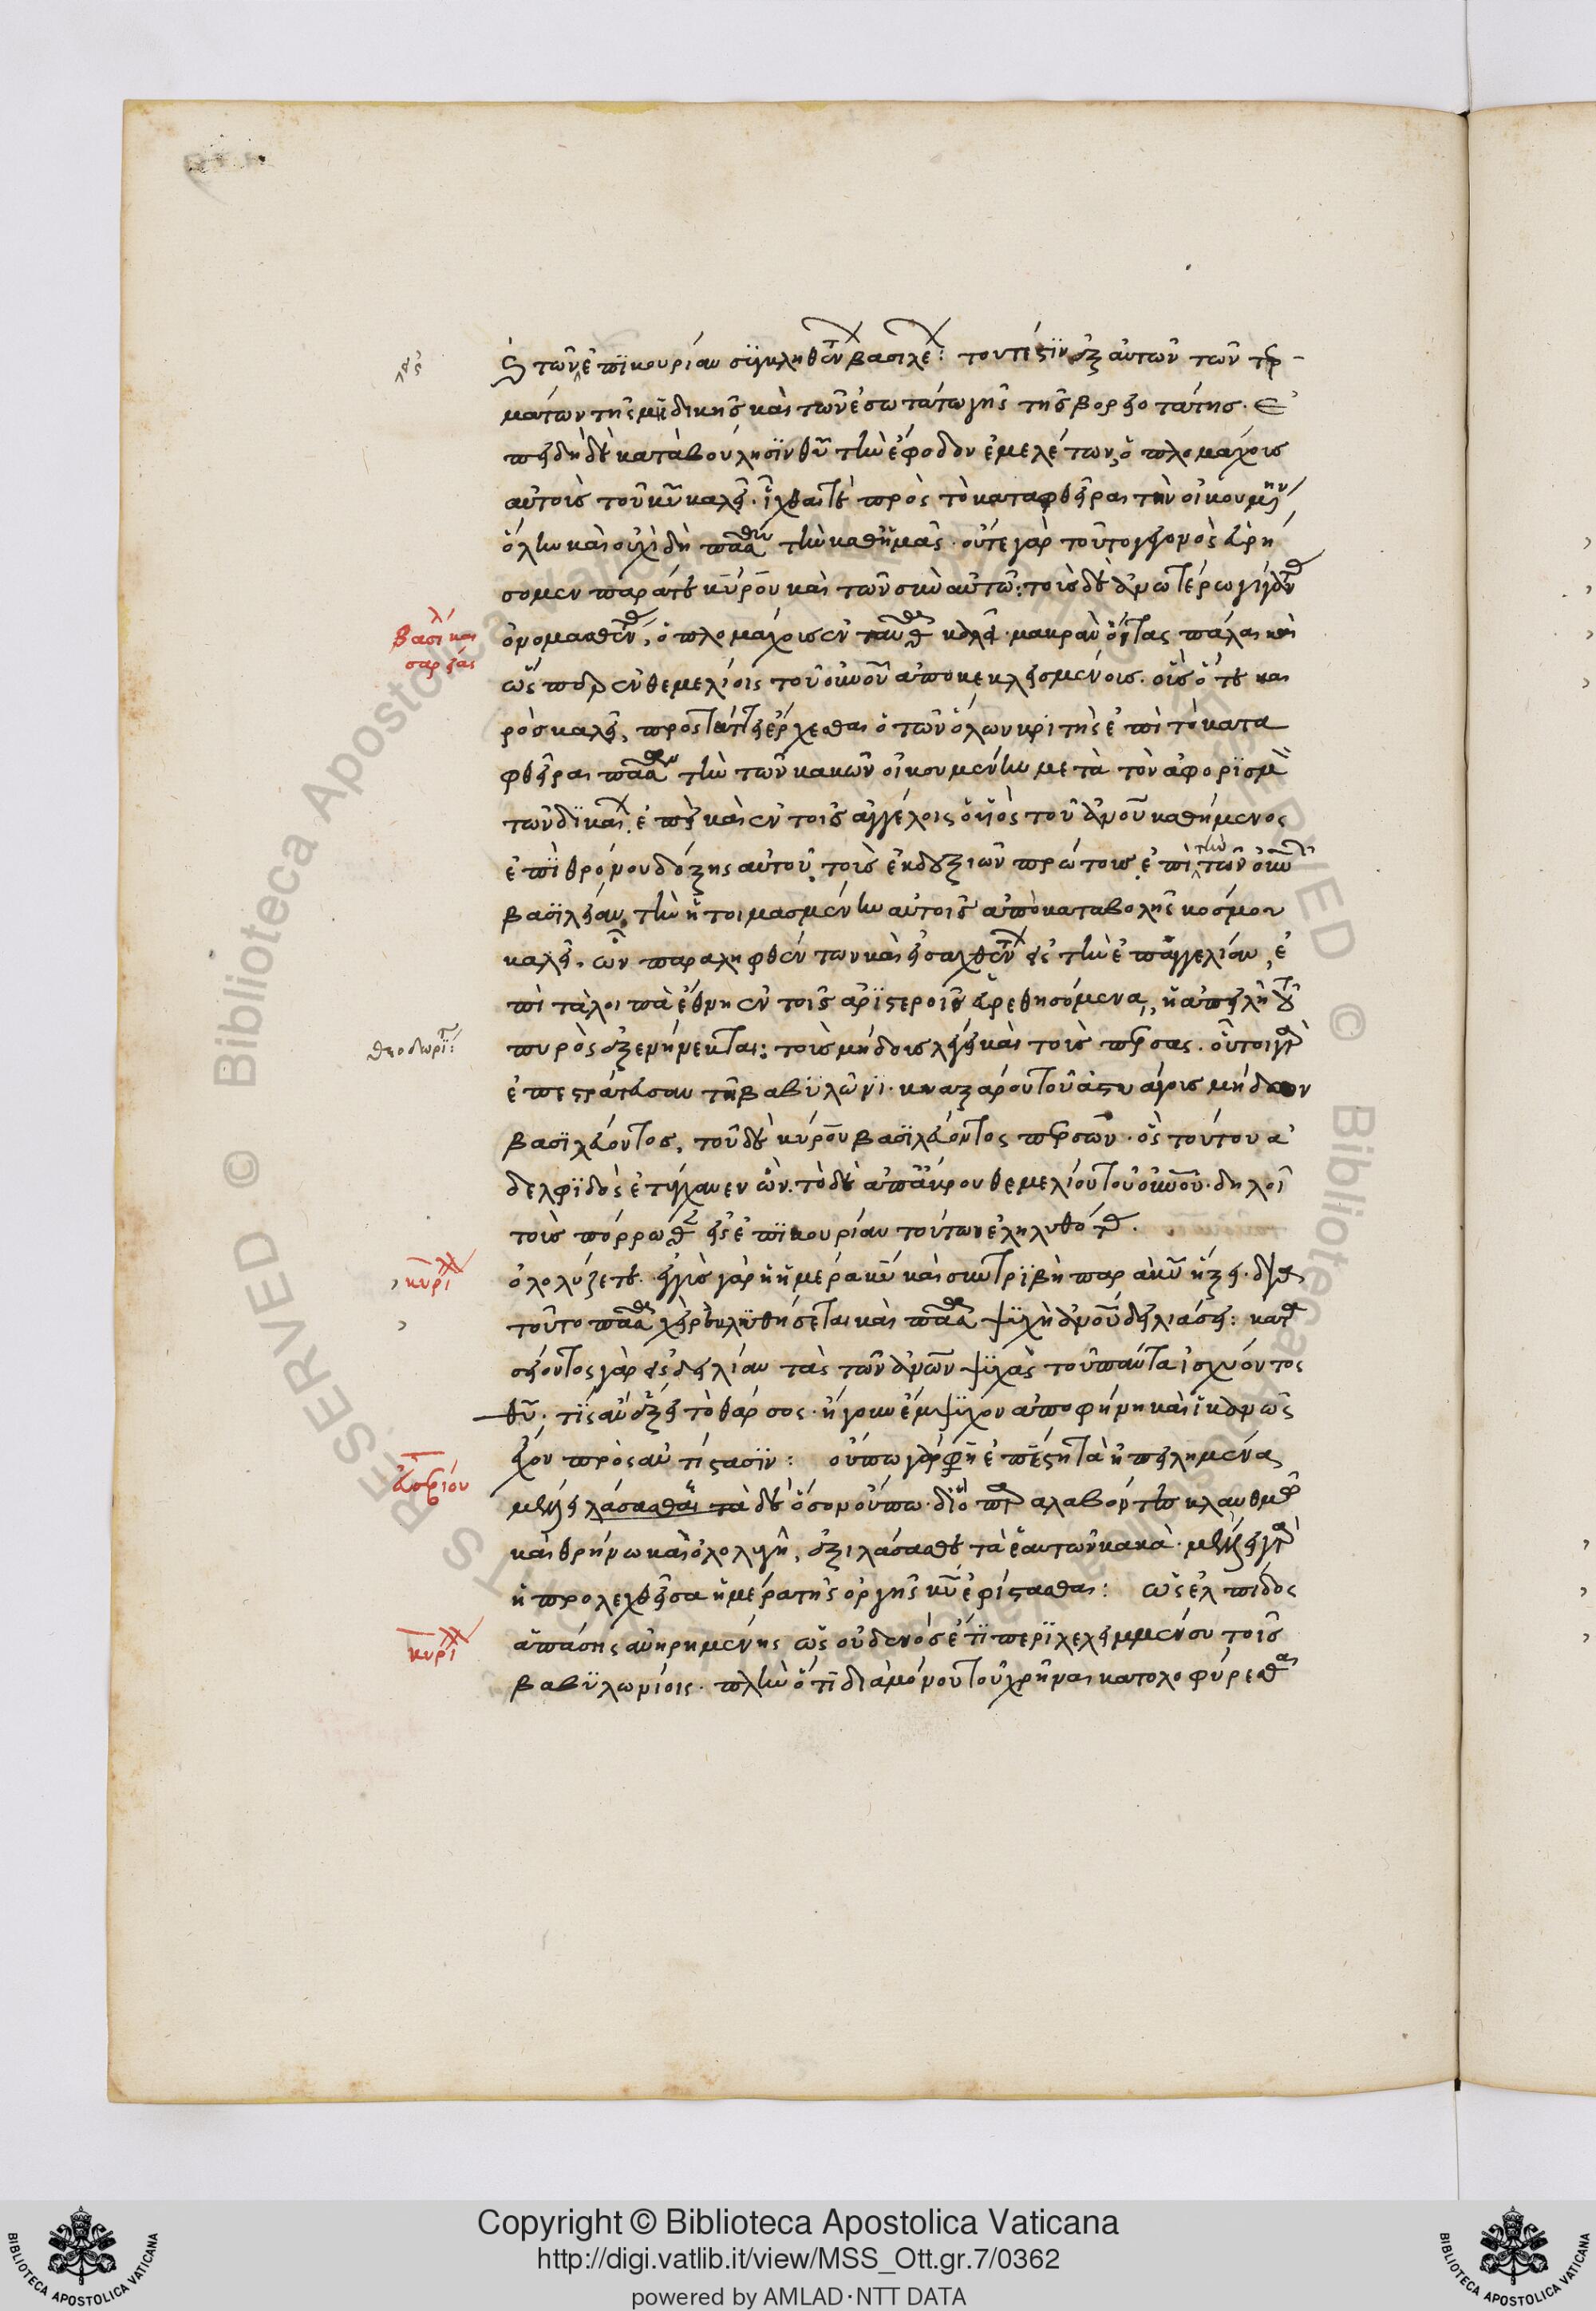 τῶν ἐπϊκουρίαν συγκληθέν βασιλέ: τουτέστιν ἐξ αὐτῶν τῶν τερ-
μάτων τῆς μηδικῆς καὶ τῶν ἐσωτάτω γῆς τῆς βορειοτάτης. Ἐ
πειδὴ δὲ κατὰ βούλησϊν θῦ τὴν ἔφοδον ἐμελέτων, ὁπλομάχοις
αὐτοὺς τοῦ κῦ καλεῖ. ἵχθαι τὲ πρὸς τὸ καταφθεῖραι τὴν οἰκουμένην
ὅλην καὶ οὐχὶ δὴ πᾶσαν τὴν καθ ἡμᾶς. οὔτε γὰρ τοῦτο γεγονὸς εὑρή
σομεν παρά τε κύρου καὶ τῶν σὺν αὐτῶ: τοὺς δὲ ἀνωτέρω γίγαντ
ὀνομασθέν, ὁπλομάχους ἐν ταῦθα καλεῖ. μακρὰν ὄντας πάλαι καὶ
ὥσπερ ἐν θεμελίοις τοῦ οὐνοῦ ἀποκεκλεισμένοις. οἷς ὅ τε και
ρὸς καλεῖ, πρόστάττει ἔρχεσθαι ὁ τῶν ὅλων κριτὴς ἐπὶ τὸ κατα
φθεῖραι πᾶσαν τὴν τῶν κακῶν οἰκουμένην μετὰ τὸν ἀφορϊσμὸ
τῶν δϊκαί. ἐπεὶ καὶ ἐν τοῖς ἀγγέλοις ὁ υἱὸς τοῦ ἀνοῦ καθήμενος
ἐπϊ θρόνου δόξης αὐτοῦ, τοὺς ἐκ δεξιῶν πρώτους, ἐπὶ τὴν τῶν οὐνῶ
βασϊλείαν, τὴν ἡτοιμασμένην αὐτοῖς ἀπὸ καταβολῆς κόσμου
καλεῖ. ὧν παραληφθέντων καὶ εἰσαχθέντ εἰς τὴν ἐπαγγελίαν, ἐ
πὶ τὰ λοιπὰ ἔθνη ἐν τοῖς ἀρϊστεροῖς εὑρεθησόμενα, ἡ ἀπειλὴ τοῦ
πυρὸς ἐξενήνεκται: τοὺς μήδους λέγει καὶ τοὺς πέρσας. οὗτοι γὰρ
ἐπεστράτευσαν τῆ βαβϋλῶνϊ. κναξάρου τοῦ ἀστυάγους μήδων
βασϊλεύοντος, τοῦ δὲ κύρου βασϊλεύοντος περσῶν. ὃς τούτου ἀ
δελφϊδὸς ἐτύγχανεν ὤν. τὸ δὲ ἀπ ἄκρου θεμελίου τοῦ οὐνοῦ. δηλοῖ
τοὺς πόρρωθεν εἰς ἐπϊκουρίαν τούτων ἐληλυθότας.
ὀλολύζετε. ἐγγὺς γὰρ ἡ ἡμέρα κῦ καὶ συντρϊβὴ παρὰ κῦ ἥξει. διὰ
τοῦτο πᾶσα χεὶρ ἐκλυθήσεται καὶ πᾶσα ψϋχὴ ἀνοῦ δειλιάσει: κατα
σείοντος γὰρ εἰς δειλίαν τὰς τῶν ἀνῶν ψϋχὰς τοῦ πάντα ἰσχύοντος
θῦ. τίς ἂν ἕξει τὸ θάρσος. ἤγουν ἔμψϋχον ἀποφήνη καὶ ἱκανῶς
ἔχον πρὸς ἀντίστασϊν: οὔπω γάρ φη ἐπέστη τὰ ἠπειλημένα
μέλλει λάσασθαι τὰ δὲ ὅσον οὔπω. διὸ παραλαβόντες κλαυθμὸν
καὶ θρήνω καὶ ὀλολυγῆ, ἐξιλάσασθε τὰ ἑαυτῶν κακὰ. μέλλει γὰρ
ἡ προλεχθεῖσα ἡμέρα τῆς ὀργῆς κῦ ἐφίστασθαι: ὡς ἐλπίδος
ἁπάσης ἀνῃρημένης ὡς οὐδενὸς ἔτι περϊλελειμμένου τοῖς
βαβϋλωνίοις. πλὴν ὅτι διὰ μόνου τοῦ χρῆναι κατολοφύρεσθαι
βασιλ καὶ
σαρείας
θεοδωρίτ:
κυρί
εὐσεβίου
κυρί
Copyright © Biblioteca Apostolica Vaticana
http://digi.vatlib.it/view/MSS_Ott.gr.7/0362
powered by AMLAD·NTT DATA
BIBLIOTECA APOSTOLICA VATICANA
BIBLIOTECA APOSTOLICA VATICANA